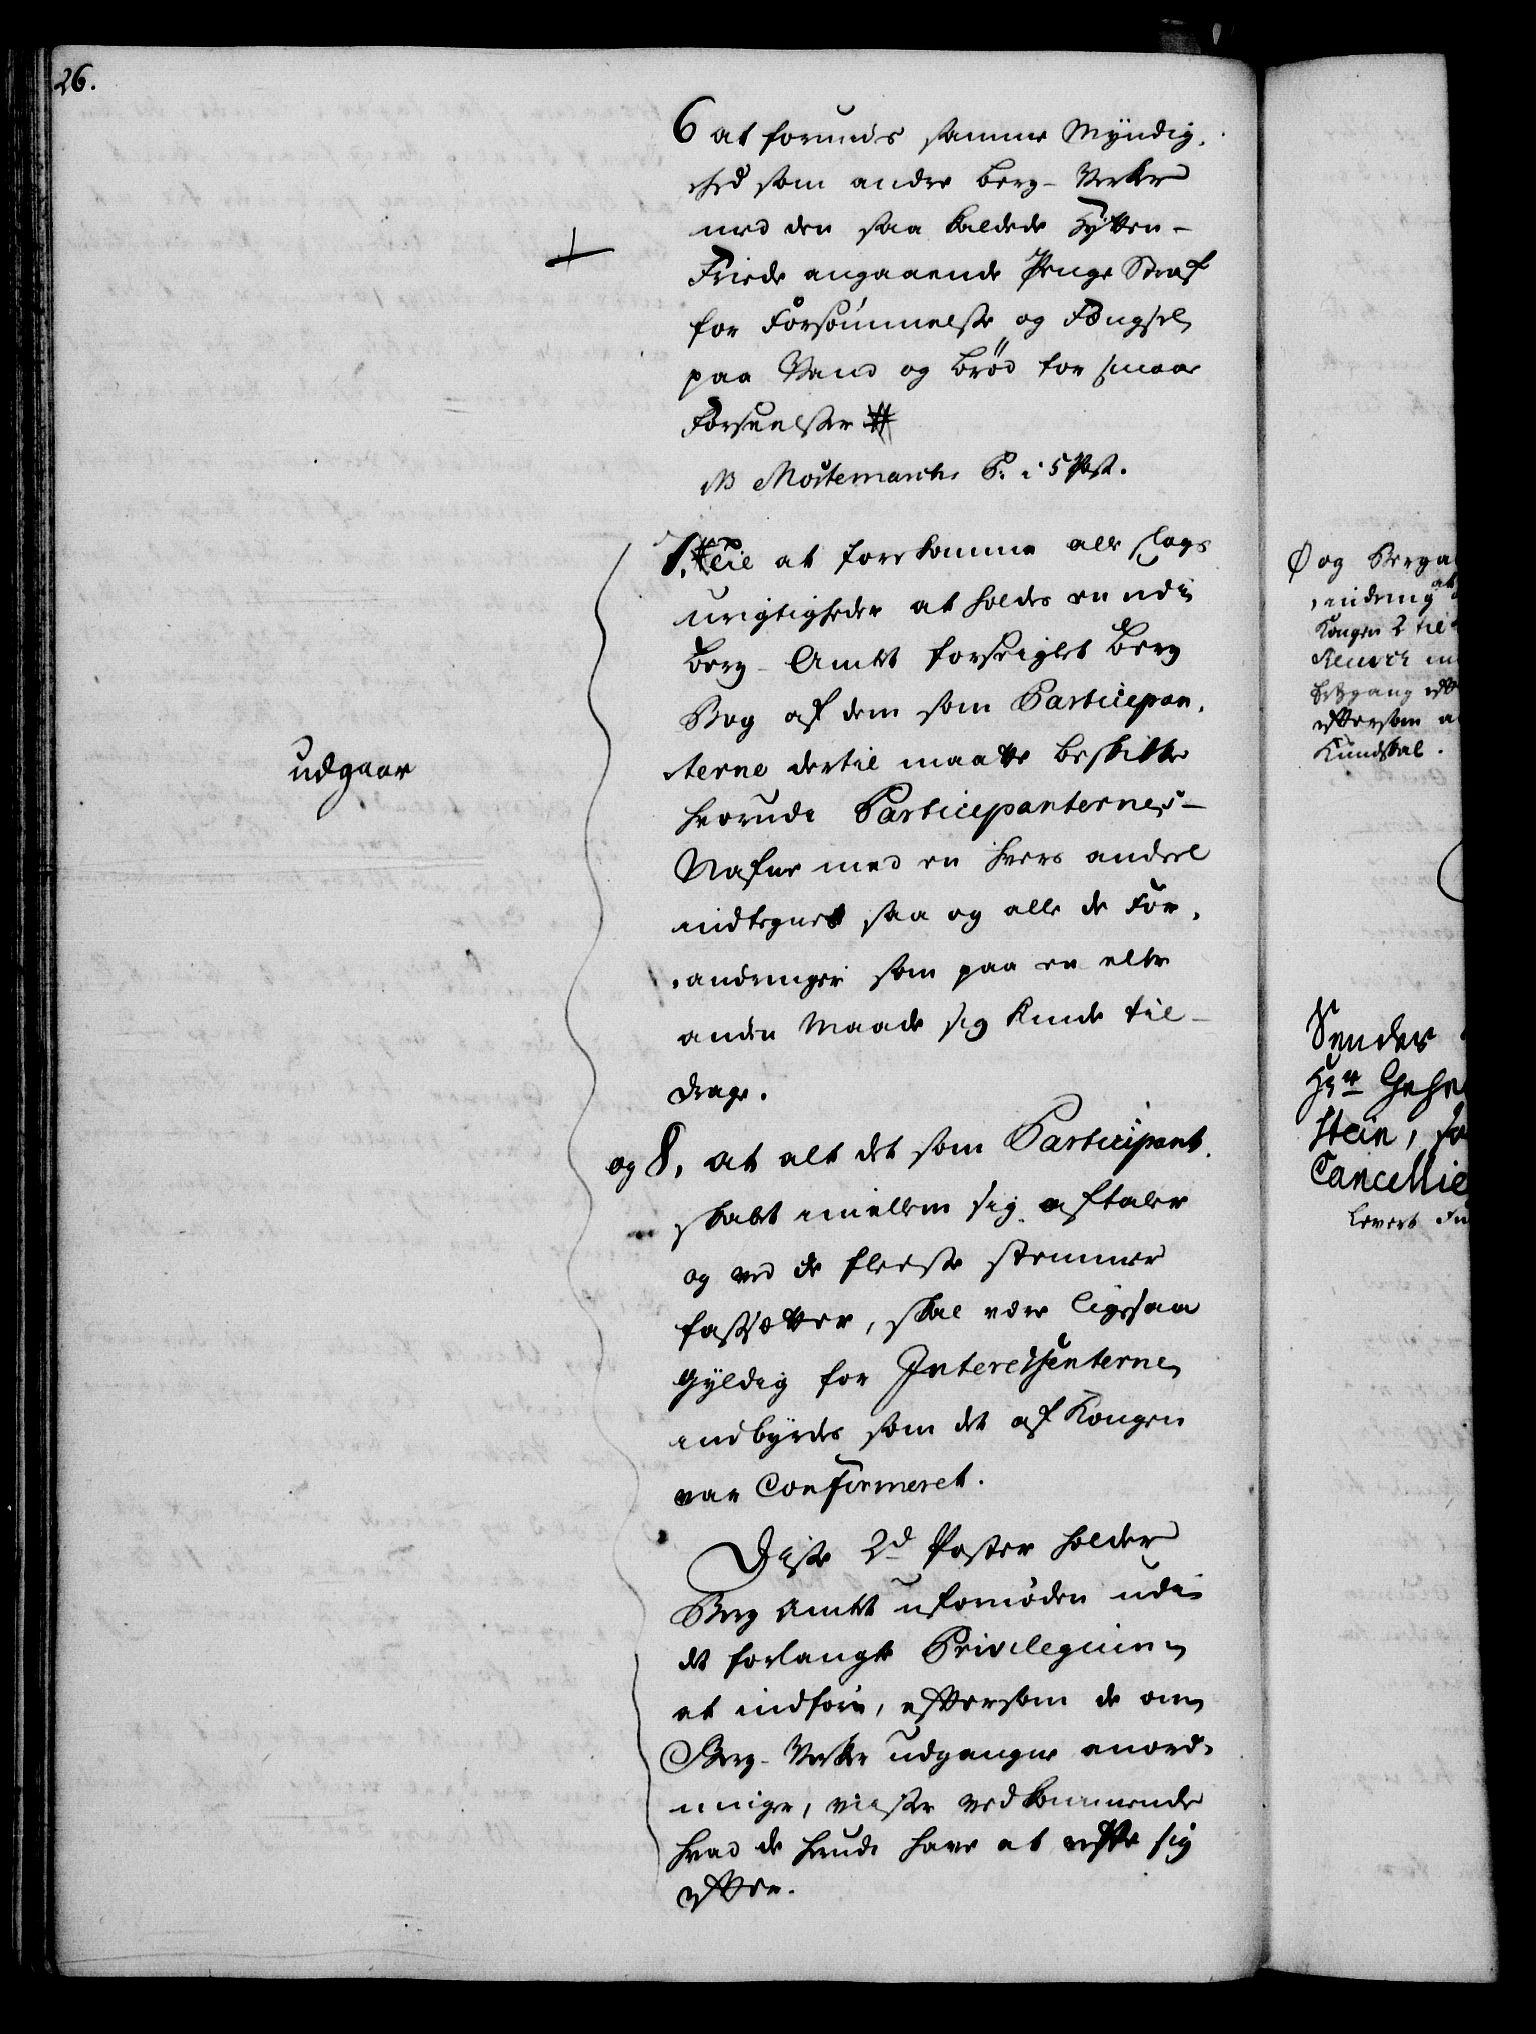 26.
6 at forundes samme Myndig-
hed som andre Berg-Verker
med den saa kaldede Hytten-
Friede angaaende Penge Straf
for Forsømmelse og Fængsel
paa Vand og Brød for smaae
Forseelser #
NB Mostemarchs P. i 5 Post.
7, # til at forekomme alle slags
urigtigheder at holdes en udi
Berg-Amtet forseiglet Berg
Bog af dem som Participan-
terne dertil maatte beskikke
hvorudi Participanternes
Nafne med en hvers andeel
indtegnes saa og alle de For-
andringer som paa en eller
anden Maade sig kunde til-
drage.
udgaar
og 8, at alt det som Participant-
skabet imellem sig aftaler
og ved de fleeste stemmer
fastsætter, skal være ligesaa
gyldig for Interessenterne
indbyrdes som det af Kongen
var Confirmeret.
Disse 2de Poster holder
Berg Amtet ufornøden udi
det forlangte Privilegium
at indføre, eftersom de om
Berg-Verker udgangne anord-
ninger, viiser vedkommende
hvad de herudi have at rette sig
efter.
Ø og Berga
andring at
Kongen 2 til
eftersom a
Kundskab.
Sendes
Hr Gehe
stein, fo
Cancellie